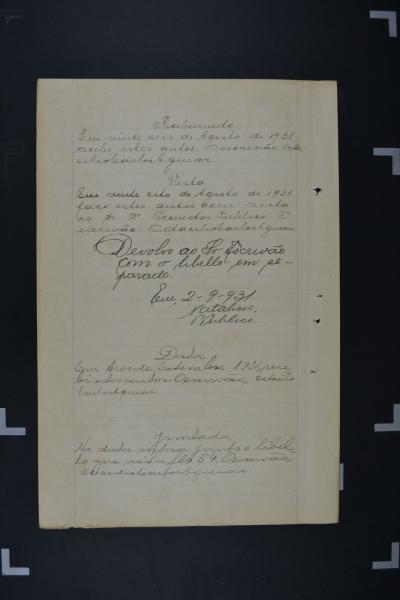 Recebimento
Em vinte seis de Agosto de 1931
recebi estes autos. O escrivão,
Carlos Aguiar
Vista
Em vinte oito de Agosto de 1931
faço estes autos com vista
ao Sr Dr Promotor Publico. O
escrivão. Carlos Aguiar
Devolvo ao Sr Escrivão
com o libello em se-
parado.
Em, 2-9-931
Natalicio,
P. Publico.
Data
Em tres de Setembro 1931, rece
bi estes autos. O escrivão,
Carlos Aguiar
Juntada
Na data supra junto o libel-
lo que vai a fls 54. O escrivão,
Carlos Aguiar